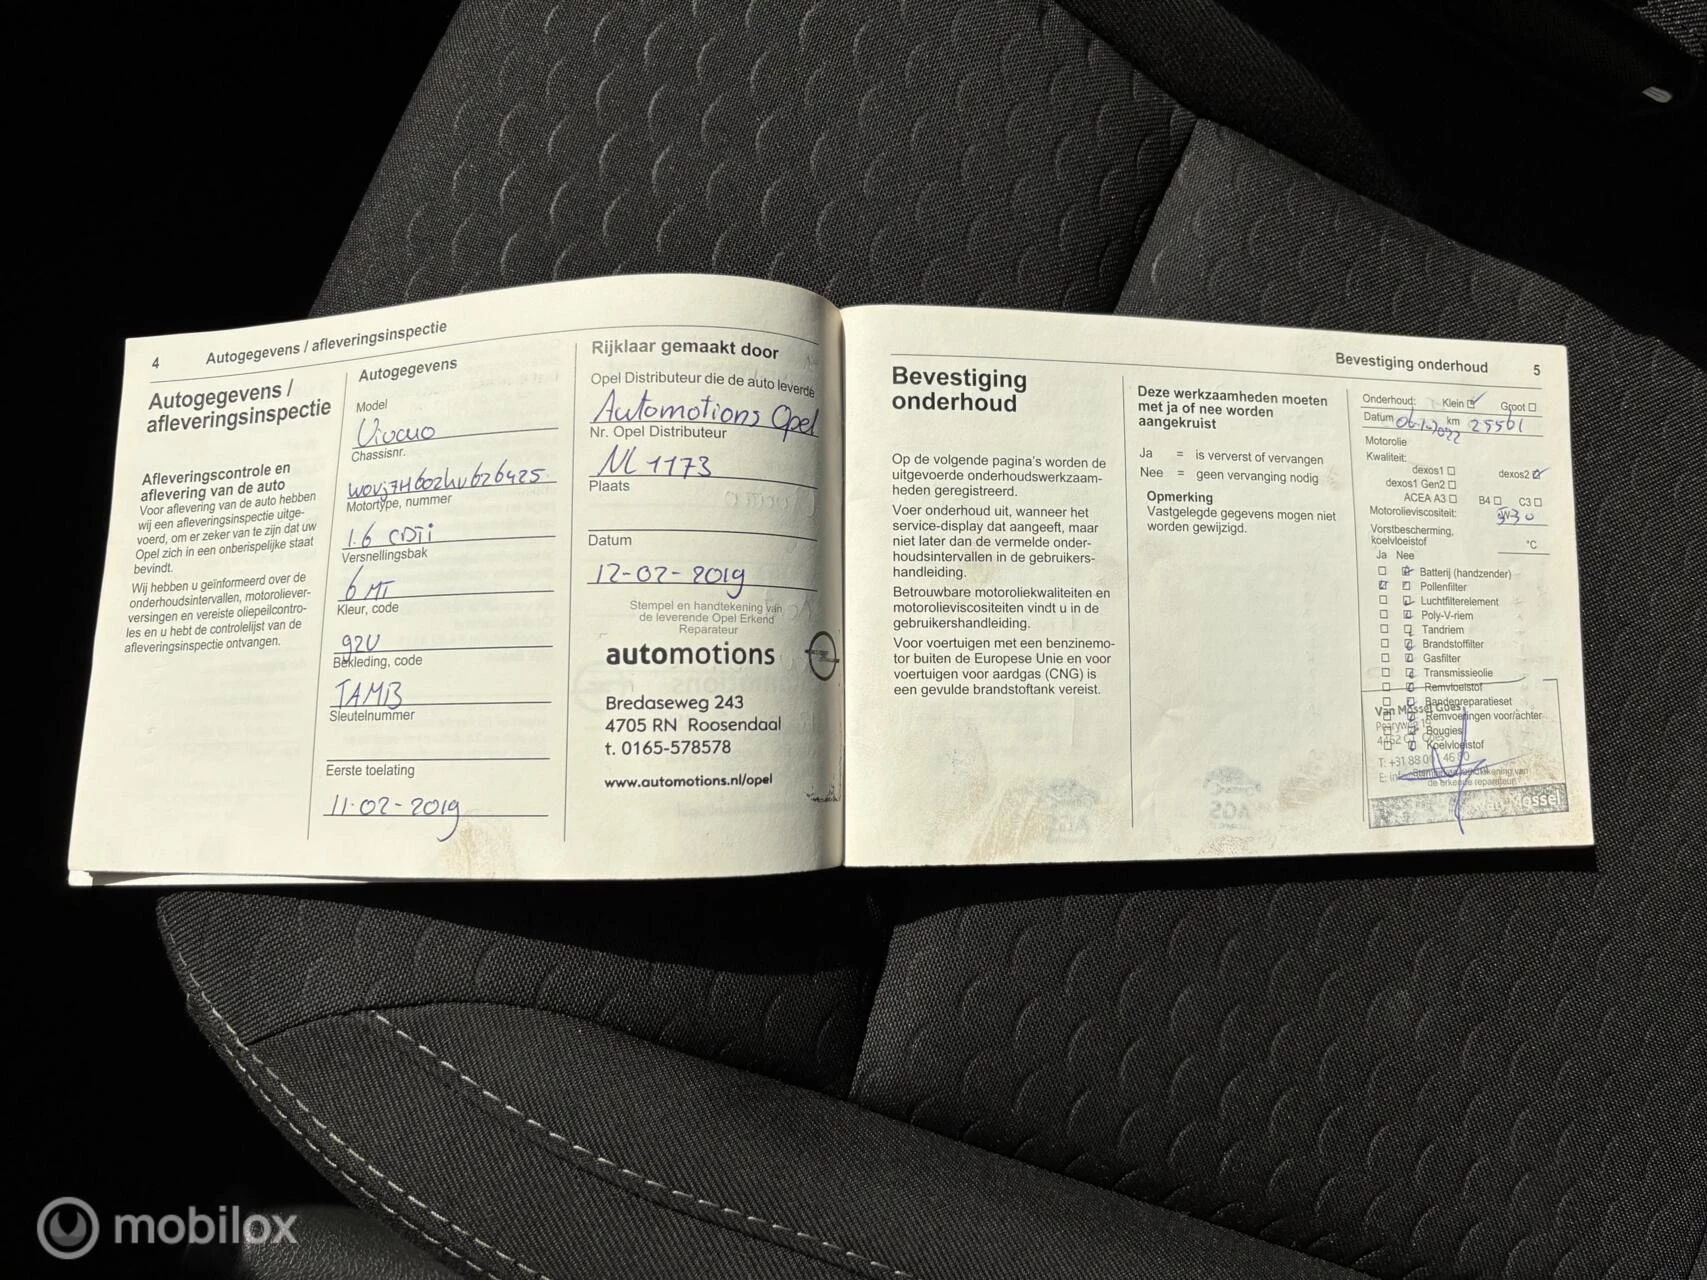 4
Autogegevens / afleveringsinspectie
Autogegevens /
afleveringsinspectie
Afleveringscontrole en
aflevering van de auto
Voor aflevering van de auto hebben
wij een afleveringsinspectie uitge-
voerd, om er zeker van te zijn dat uw
Opel zich in een onberispelijke staat
bevindt.
Wij hebben u geïnformeerd over de
onderhoudsintervallen, motoroliever-
versingen en vereiste oliepeilcontro-
les en u hebt de controlelijst van de
afleveringsinspectie ontvangen.
Autogegevens
Model
Vivaro
Chassisnr.
Motortype, nummer
1.6 CDTi
Versnellingsbak
6 MT
Kleur, code
92U
Bekleding, code
TAMB
Sleutelnummer
Eerste toelating
11-02-2019
Rijklaar gemaakt door
Opel Distributeur die de auto leverde
Automotions Opel
Nr. Opel Distributeur
NL 1173
Plaats
Datum
12-02-2019
Stempel en handtekening van
de leverende Opel Erkend
Reparateur
automotions
Bredaseweg 243
4705 RN Roosendaal
t. 0165-578578
www.automotions.nl/opel
Bevestiging onderhoud
5
Bevestiging
onderhoud
Op de volgende pagina's worden de
uitgevoerde onderhoudswerkzaam-
heden geregistreerd.
Voer onderhoud uit, wanneer het
service-display dat aangeeft, maar
niet later dan de vermelde onder-
houdsintervallen in de gebruikers-
handleiding.
Betrouwbare motoroliekwaliteiten en
motorolieviscositeiten vindt u in de
gebruikershandleiding.
Voor voertuigen met een benzinemo-
tor buiten de Europese Unie en voor
voertuigen voor aardgas (CNG) is
een gevulde brandstoftank vereist.
Deze werkzaamheden moeten
met ja of nee worden
aangekruist
Ja = is ververst of vervangen
Nee = geen vervanging nodig
Opmerking
Vastgelegde gegevens mogen niet
worden gewijzigd.
Onderhoud: Klein Groot
Datum km 25561
Motorolie
Kwaliteit:
dexos1 dexos2
dexos1 Gen2
ACEA A3 B4 C3
Motorolieviscositeit: 5W30
Vorstbescherming,
koelvloeistof °C
Ja Nee
Batterij (handzender)
Pollenfilter
Luchtfilterelement
Poly-V-riem
Tandriem
Brandstoffilter
Gasfilter
Transmissieolie
Remvloeistof
Bandenreparatieset
Van Mossel Goes
Remvoeringen voor/achter
Bougies
Koelvloeistof
de erkende reparateur
Van Mossel
mobilox